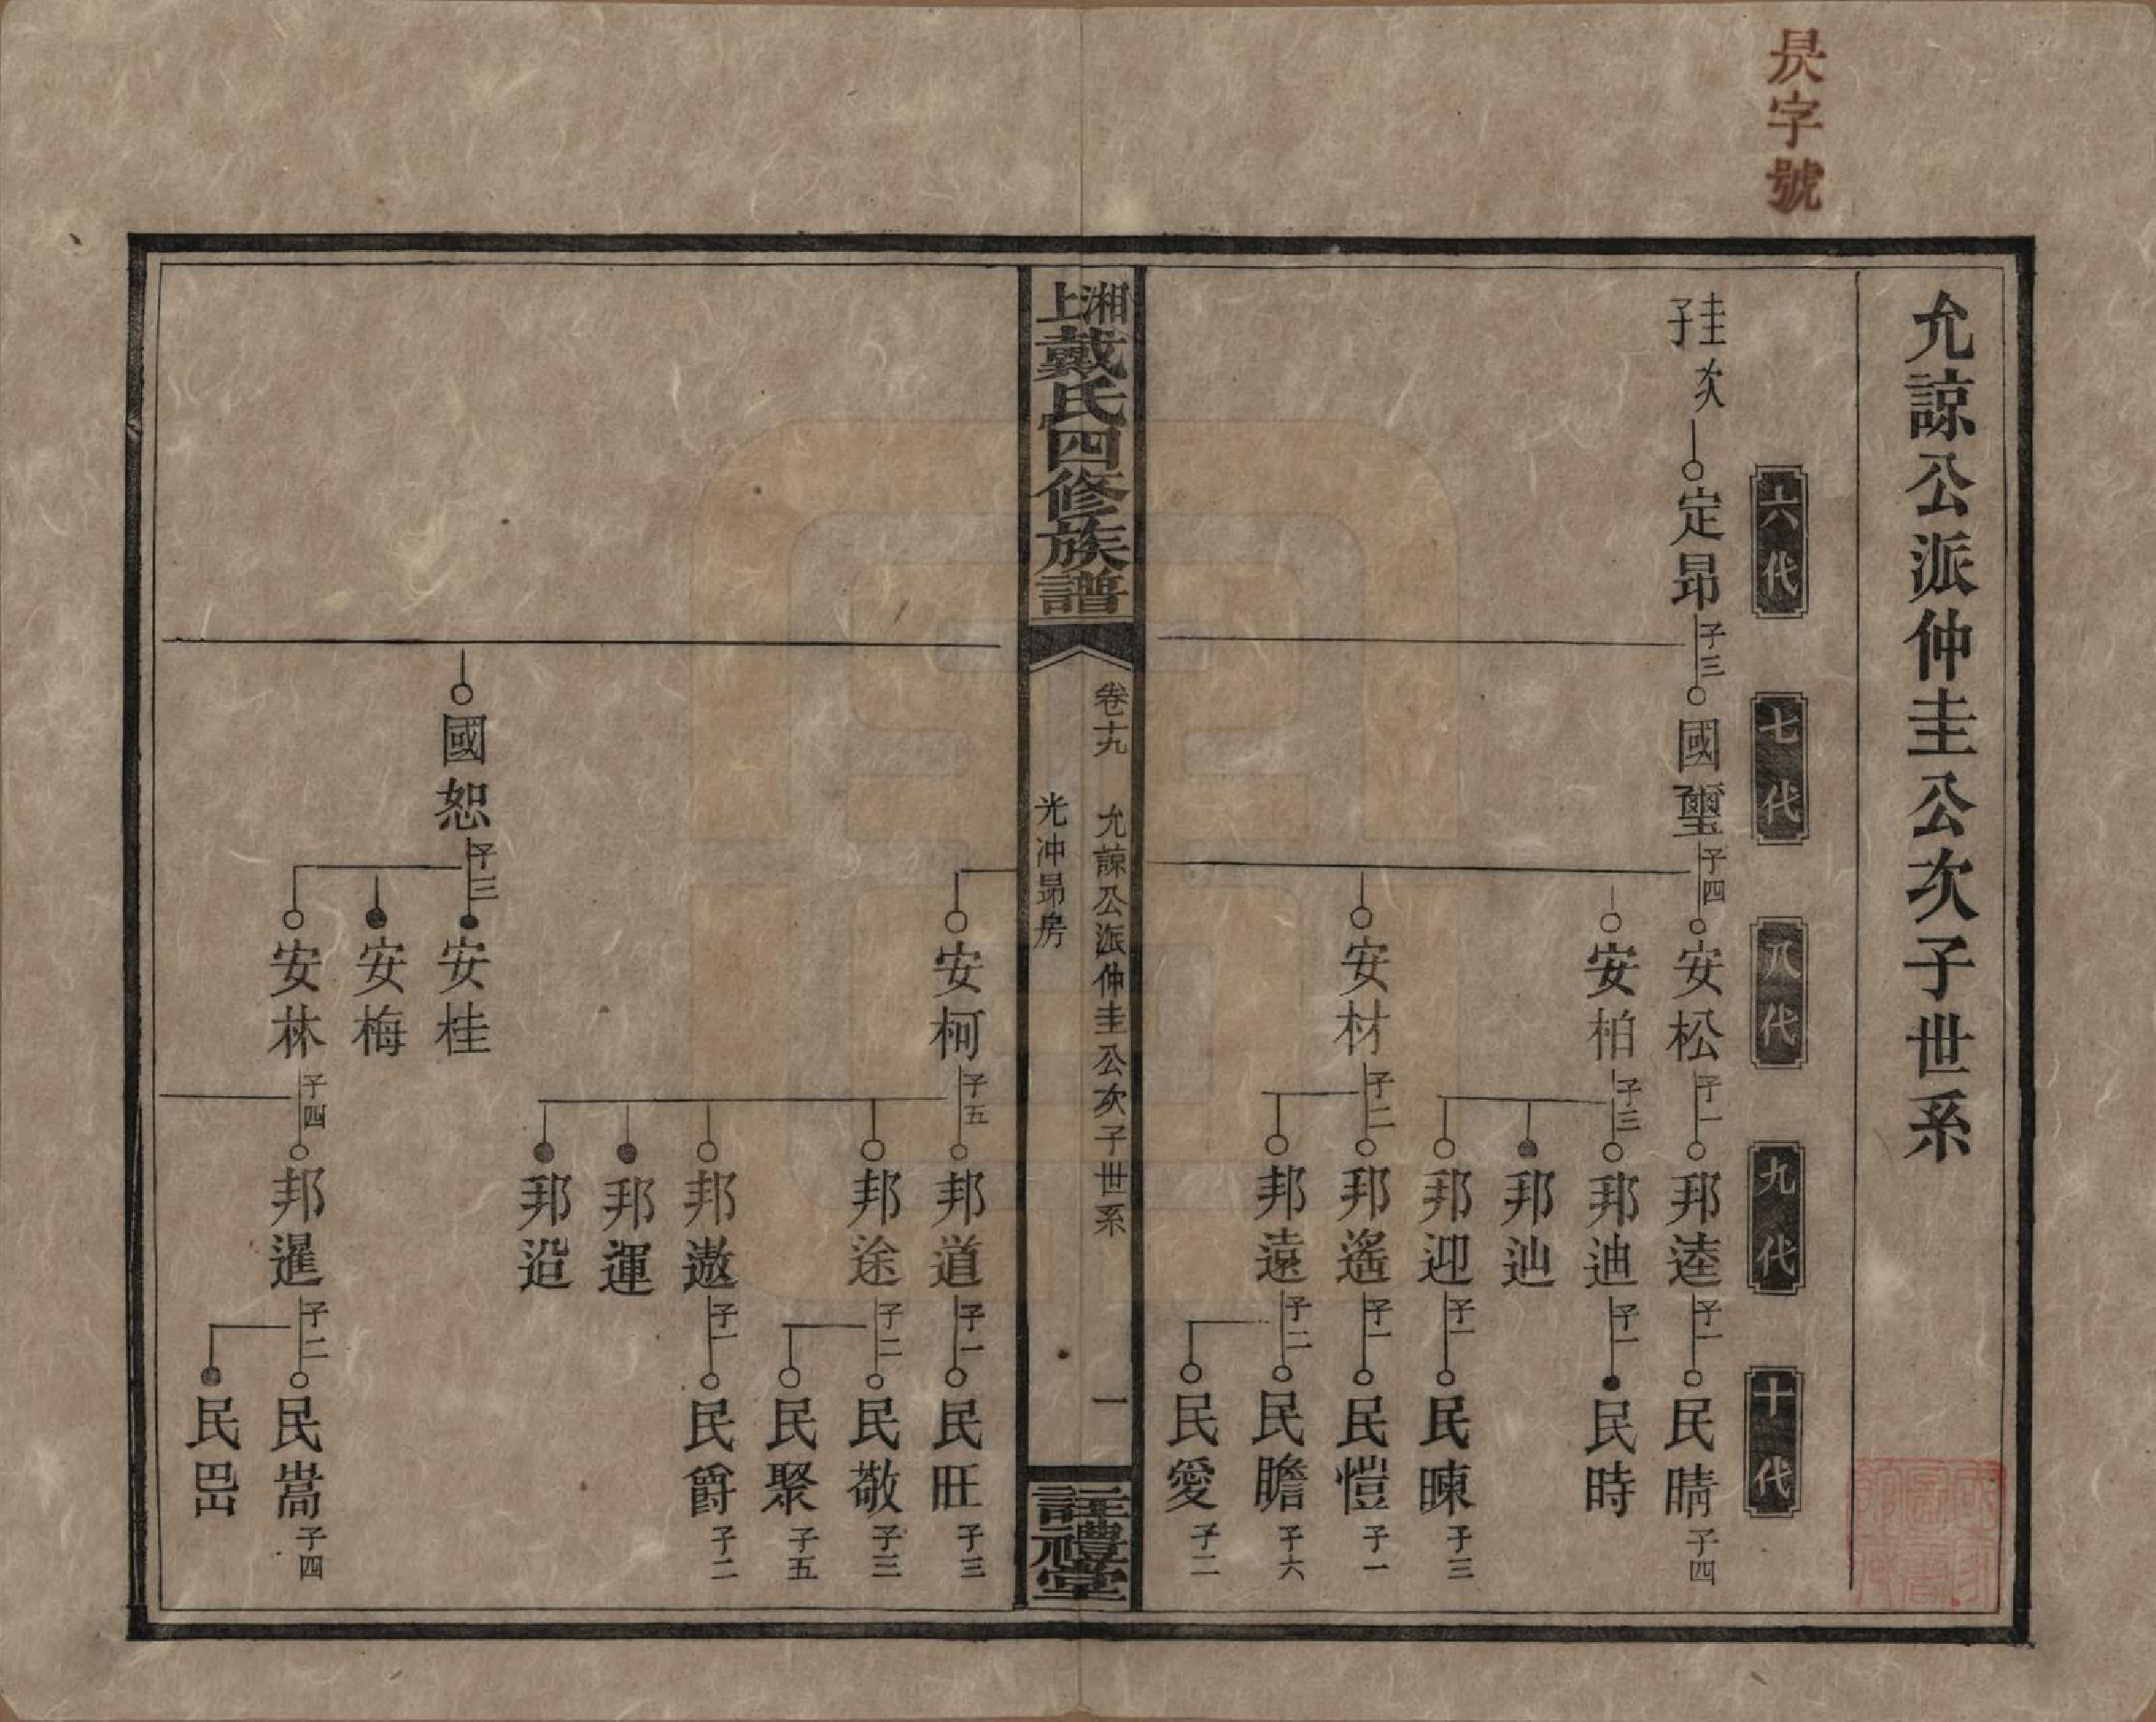 昃字號
允諒公派仲圭公次子世系
六代
七代
八代
九代
十代
圭次子
定昂 子三
國璽 子四
安松 子一
邦逵 子一
民晴 子四
安柏 子三
邦迪 子一
民時
邦辿
邦迎 子一
民暕 子三
安材 子二
邦遙 子一
民愷 子一
邦遠 子二
民瞻 子六
民愛 子二
湘上戴氏四修族譜
卷十九
允諒公派仲圭公次子世系
一
光冲昂房
註禮堂
安柯 子五
邦道 子一
民旺 子三
邦途 子二
民敬 子三
民聚 子五
邦遨 子一
民爵 子二
邦運
邦迨
國恕 子三
安桂
安梅
安林 子四
邦暹 子二
民嵩 子四
民岊